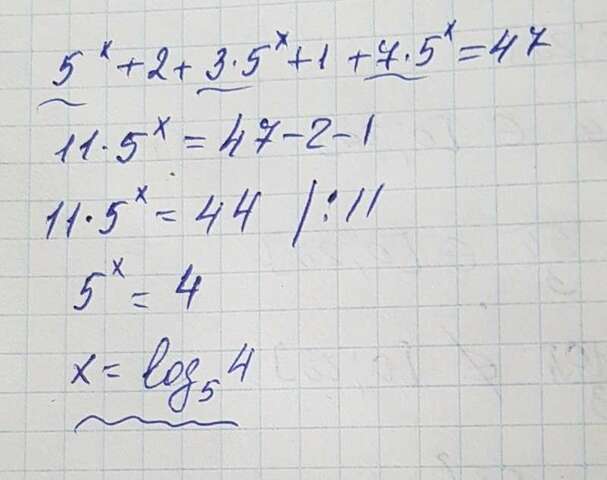 5^x + 2 + 3·5^x + 1 + 7·5^x = 47
11·5^x = 47 - 2 - 1
11·5^x = 44 /:11
5^x = 4
x = log₅4